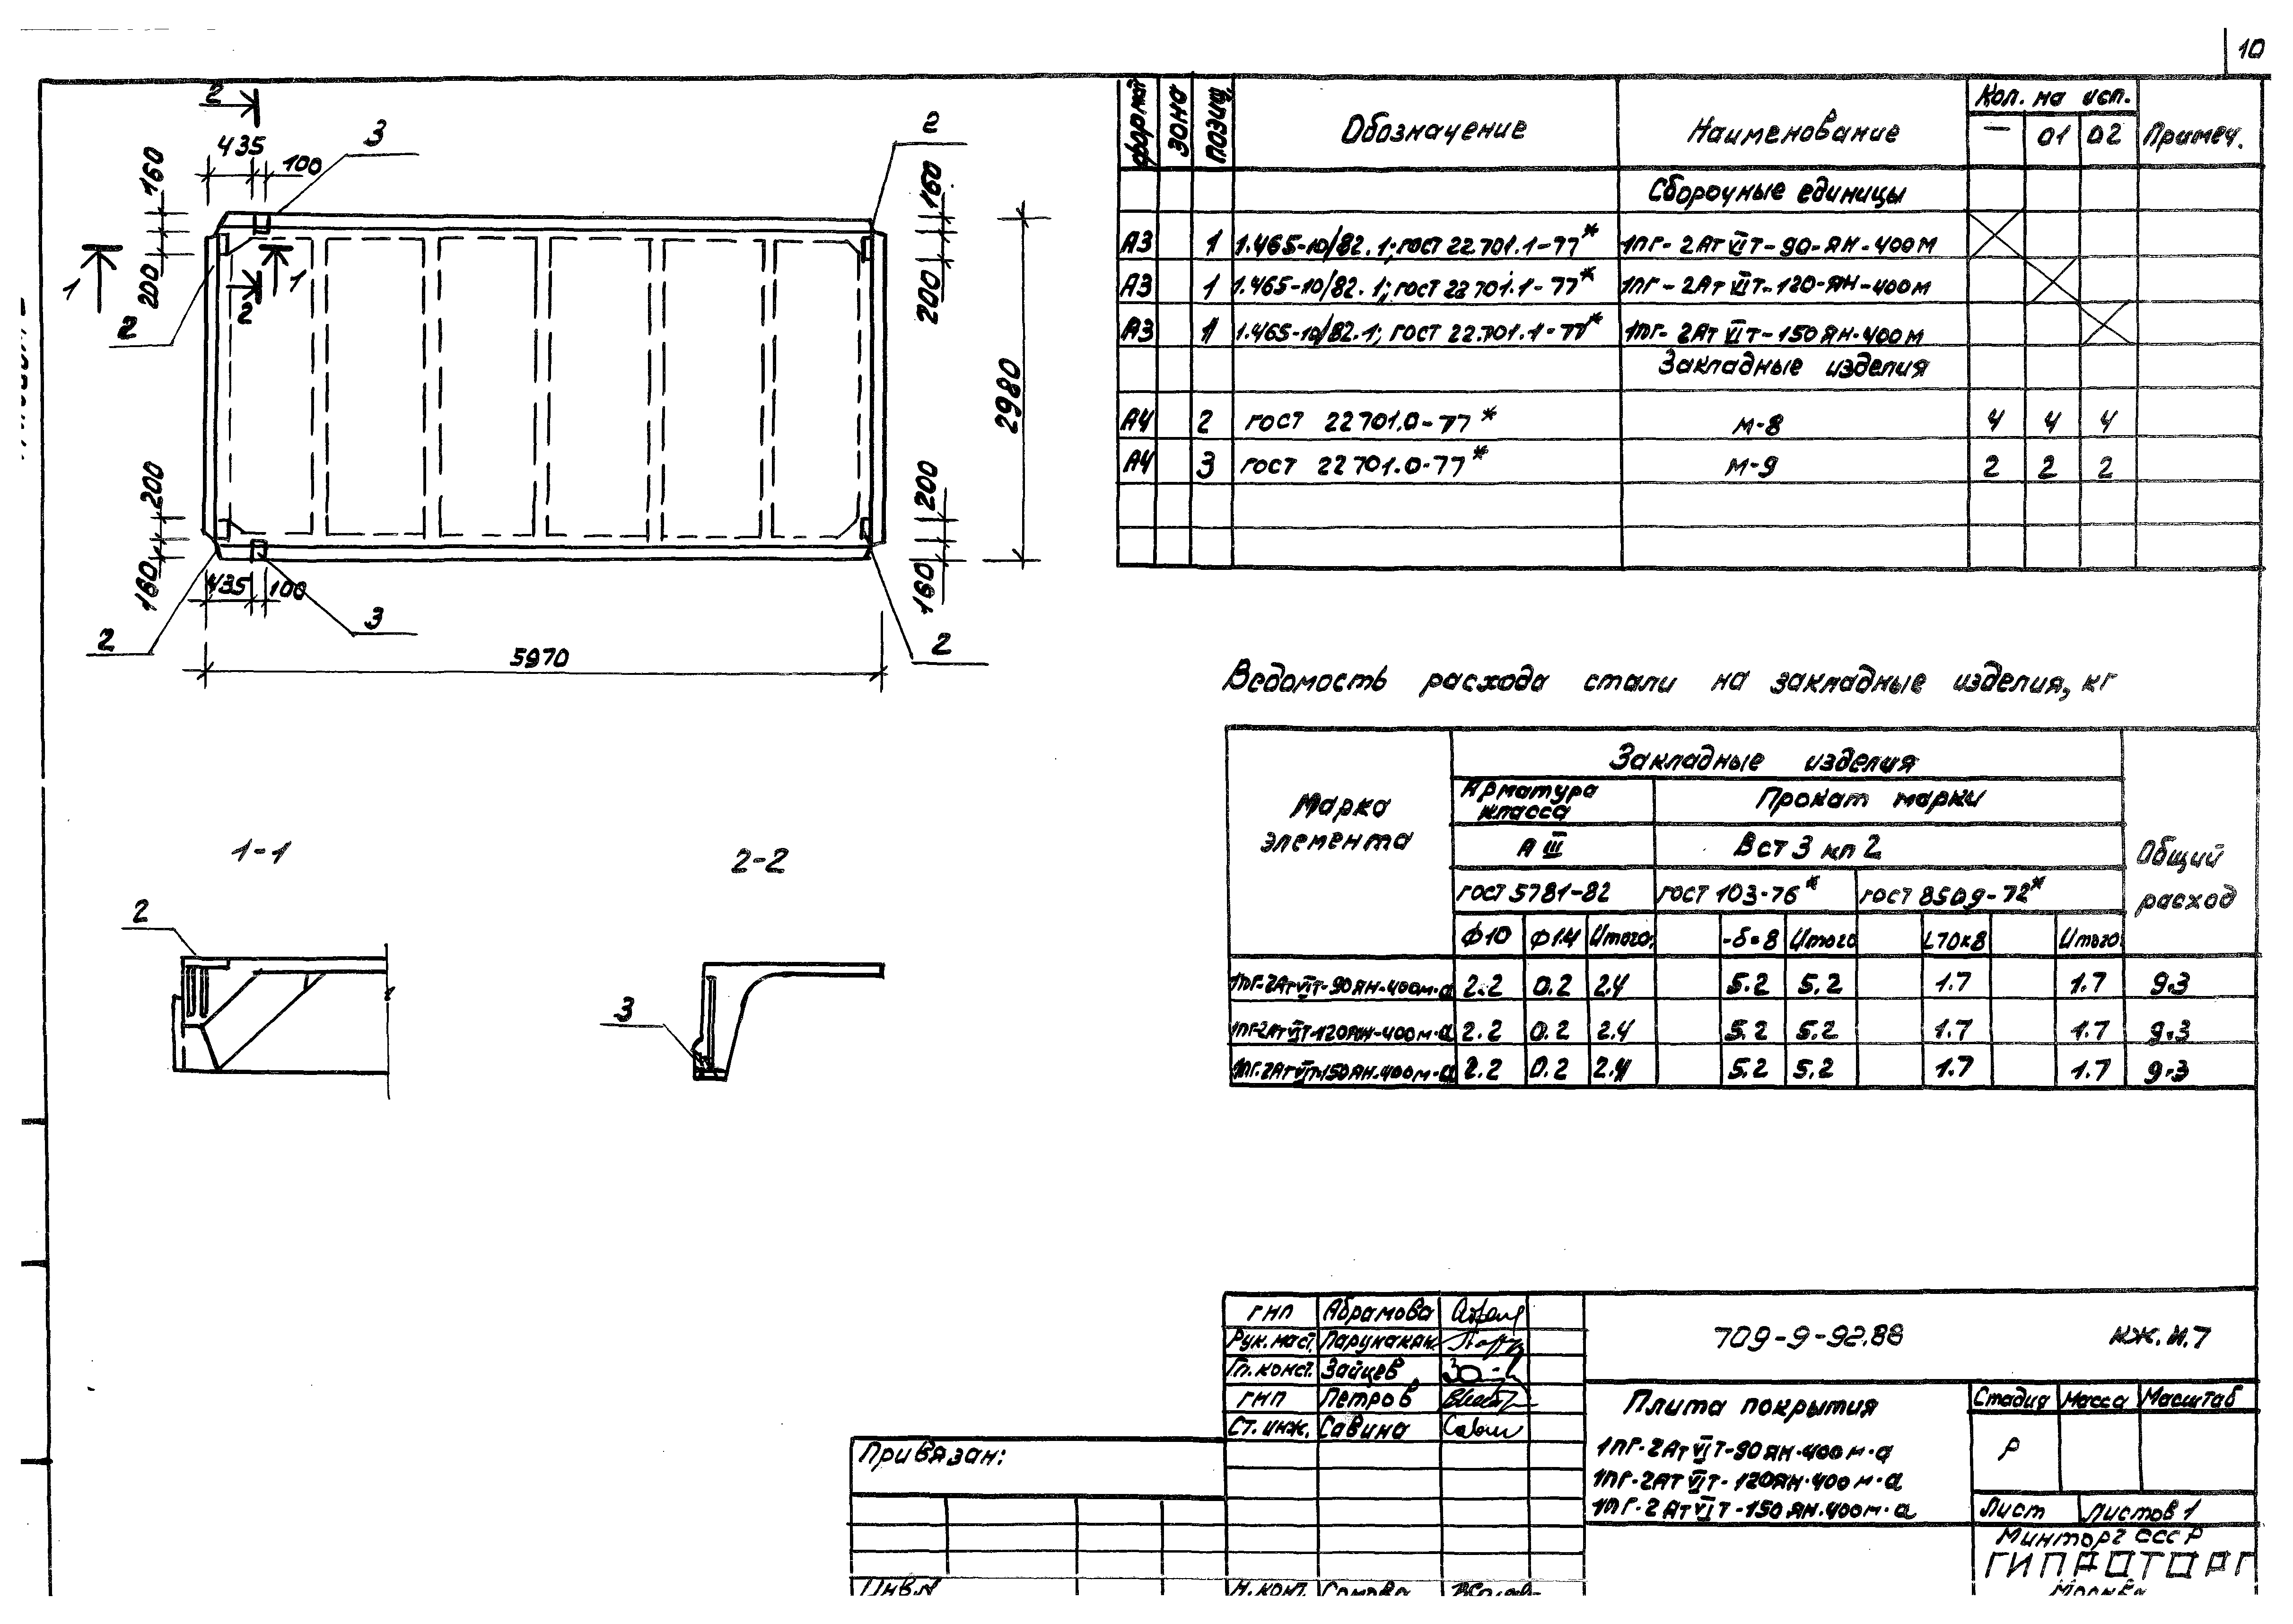 10
2
435
3
100
160
2
160
1
200
1
2
2
200
2980
200
200
160
435
100
160
3
2
2
5970
1-1
2-2
2
3
формат зона позиц. Обозначение Наименование Кол. на исп. Примеч.
— 01 02
Сборочные единицы
А3 1 1.465-10/82.1; гост 22701.1-77* 1пг-2АтVIт-90-ян-400м
А3 1 1.465-10/82.1; гост 22701.1-77* 1пг-2АтVIт-120-ян-400м
А3 1 1.465-10/82.1; гост 22.701.1-77* 1пг-2АтVIт-150ян-400м
Закладные изделия
А4 2 гост 22701.0-77* м-8 4 4 4
А4 3 гост 22701.0-77* м-9 2 2 2
Ведомость расхода стали на закладные изделия, кг
Марка элемента Закладные изделия Общий расход
Арматура класса Прокат марки
А III Вст3кп2
гост 5781-82 гост 103-76* гост 8509-72*
Ф10 Ф14 Итого -δ=8 Итого L70x8 Итого
1пг-2АтVIт-90ян-400м-а 2.2 0.2 2.4 5.2 5.2 1.7 1.7 9.3
1пг-2АтVIт-120ян-400м-а 2.2 0.2 2.4 5.2 5.2 1.7 1.7 9.3
1пг-2АтVIт-150ян-400м-а 2.2 0.2 2.4 5.2 5.2 1.7 1.7 9.3
гип Абрамова
Рук. маст. Парунакян
Гл. конст. Зайцев
гип Петров
Ст. инж. Савина
709-9-92.88 кж.и.7
Плита покрытия
1пг-2АтVIт-90ян-400м-а
1пг-2АтVIт-120ян-400м-а
1пг-2АтVIт-150ян-400м-а
Стадия Масса Масштаб
Р
Лист Листов 1
Минторг СССР
ГИПРОТОРГ
Москва
Привязан:
Инв.N
Н.конт.